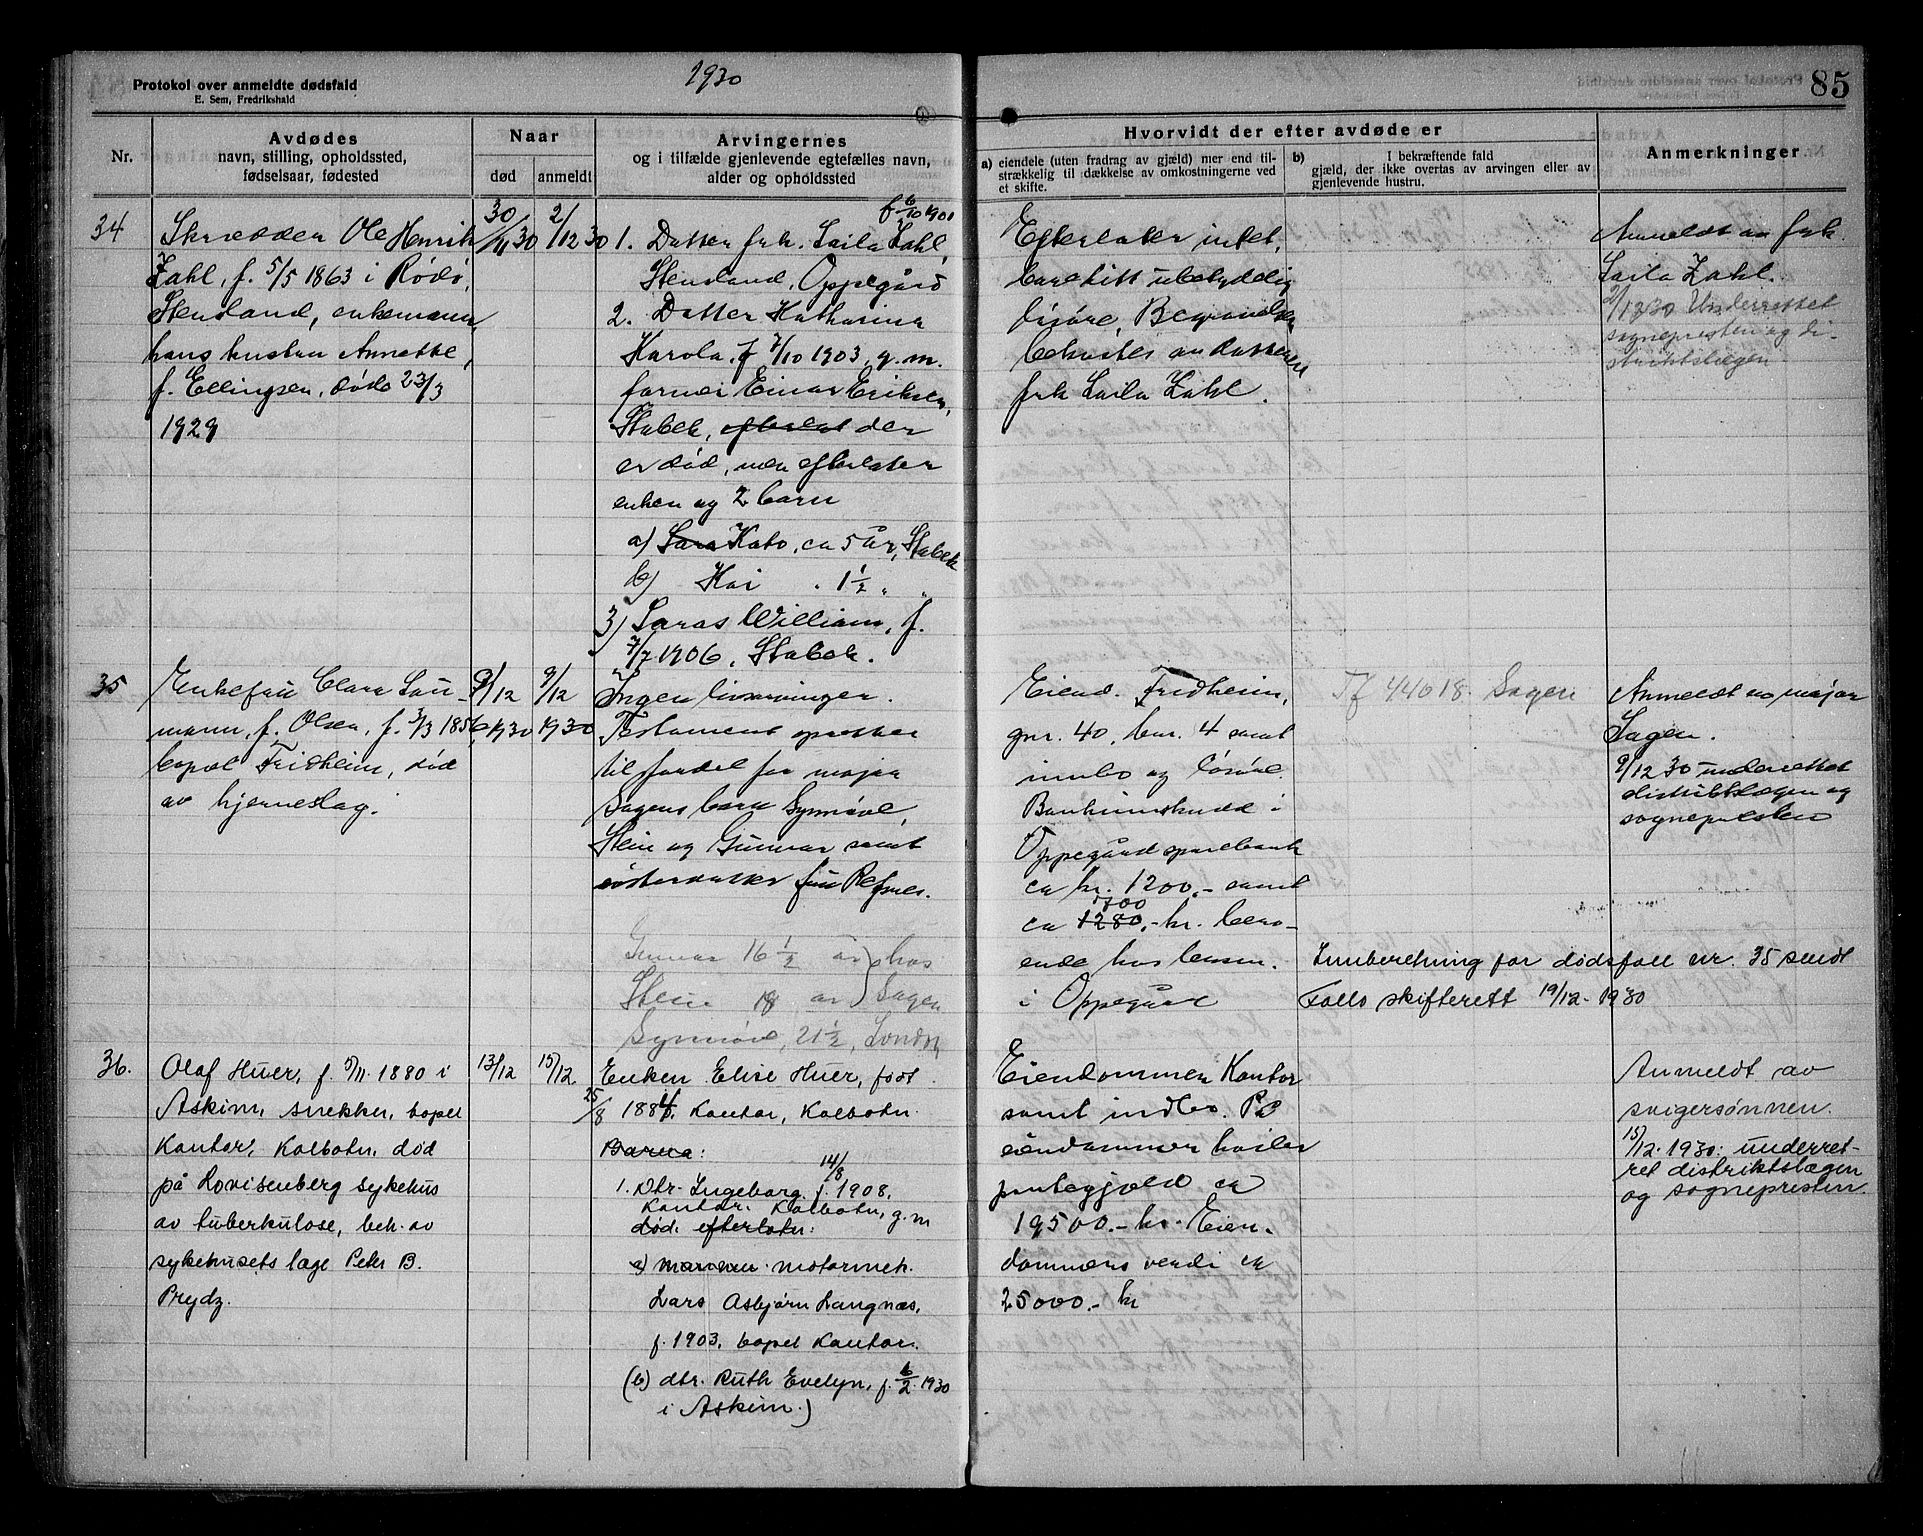 Protokol over anmeldte dødsfald
E. Sem, Fredrikshald
1930
85
Nr.
Avdødes
navn, stilling, opholdssted,
fødselsaar, fødested
Naar
død
anmeldt
Arvingernes
og i tilfælde gjenlevende egtefælles navn,
alder og opholdssted
Hvorvidt der efter avdøde er
a) eiendele (uten fradrag av gjæld) mer end til-
strækkelig til dækkelse av omkostningerne ved
et skifte.
b) I bekræftende fald
gjæld, der ikke overtas av arvingen eller av
gjenlevende hustru.
Anmerkninger
34
Skrædder Ole Henrik
Zahl, f. 5/5 1863 i Rødø,
Stenland, enkemann,
hans hustru Annette,
f. Ellingsen, døde 23/3
1929
30/11 30
2/12 30
f 6/10 1901
1. Datter frk. Laila Zahl,
Stenland, Oppegård
2. Datter Katharina
Karola, f 7/10 1903, g. m.
Einar Eriksen,
Stabek, efterlat der
er død, men efterlater
enken og 2 barn
a) Sara Kato, ca 5 år, Stabek
b) Kai . 1½ " "
3) Saras William, f.
7/7 1906, Stabek.
Efterlater intet,
bare litt ubetydelig
løsøre, Begravelsen
bekostes av datteren
frk Laila Zahl.
Anmeldt av frk.
Laila Zahl.
2/12 30 Underrettet
sognepresten og di-
striktslægen
35
Enkefru Clara Lau-
mann, f. Olsen, f. 3/3 1856,
bopæl Fridheim, død
av hjerneslag.
9/12
1930
9/12
1930
Ingen livsarvinger.
Testament oprettet
til fordel for major
Sagens barn Synnøve,
Stein og Gunnar samt
søsterdatter fru Refsnes.
Gunnar 16½ år } hos
Stein 18 år } Sagen
Synnøve, 21½, London
Eiend. Fridheim,
gnr. 40, bnr. 4 samt
innbo og løsøre.
Bankinnskudd i
Oppegård sparebank
ca kr. 1200.- samt
700
ca 1280.- kr. bero-
ende hos lensm.
i Oppegård
Tf 44018. Sagen
Innberetning for dødsfall nr. 35 sendt
Follo skifterett 19/12 - 1930
Anmeldt av major
Sagen.
9/12 30 underrettet
distriktslægen og
sognepresten
36.
Olaf Huer, f. 5/11. 1880 i
Askim, snekker, bopel
Kantor, Kolbotn, død
på Lovisenberg sykehus
av tuberkulose, beh. av
sykehusets læge Peter B.
Prydz.
13/12
15/12
Enken Elise Huer, født
25/8 1884, Kantor, Kolbotn.
Barna:
14/8
1. Dtr. Ingeborg, f. 1908,
Kantor, Kolbotn, g. m
død. efterlater:
a) motormek.
Lars Asbjørn Langnæs,
f. 1903, bopel Kantor.
(b) dtr. Ruth Evelyn, f. 6/2. 1930
i Askim.)
Eiendommen Kantor
samt indbo. På
eiendommen hviler
pantegjæld ca
19500.- kr. Eien-
dommens verdi ca
25000.- kr
Anmeldt av
svigersønnen.
15/12. 1930: underret-
tet distriktslægen
og sognepresten.